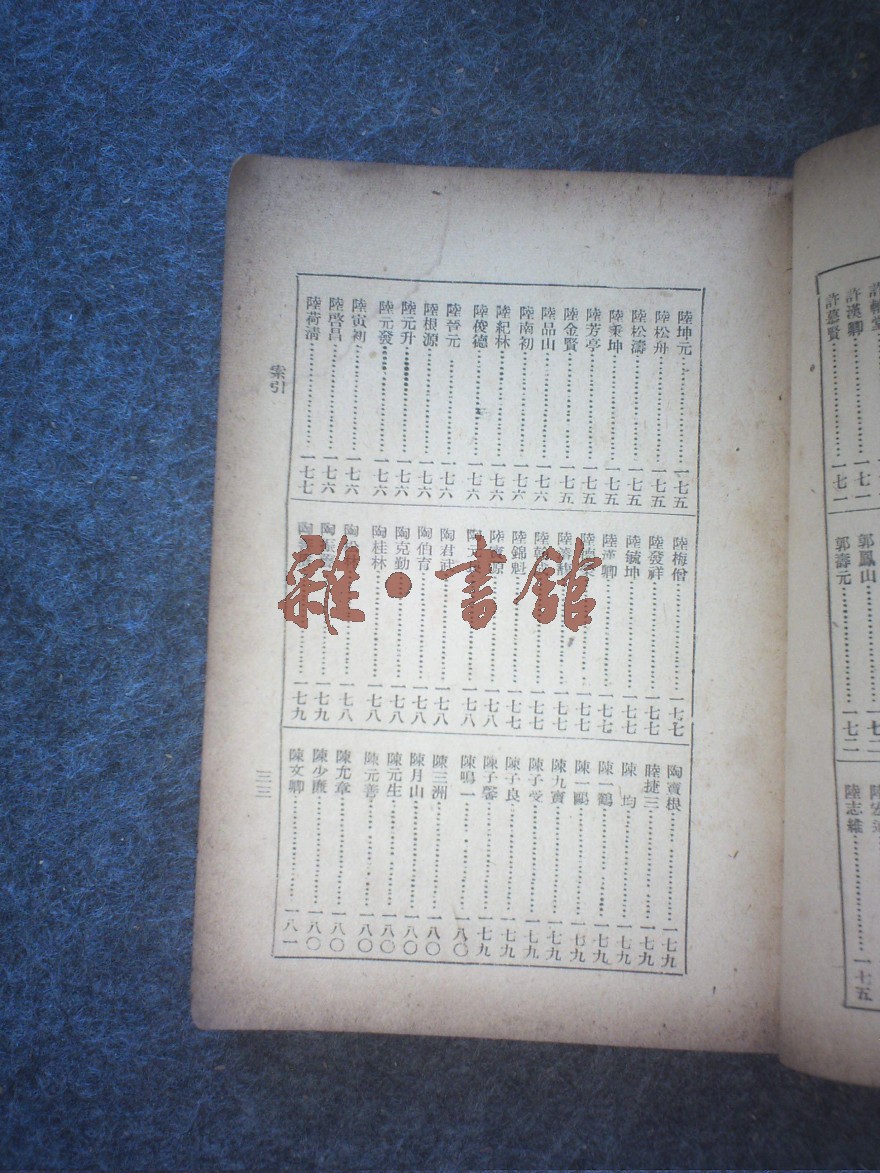 陸坤元……一七五
陸松舟……一七五
陸松濤……一七五
陸秉坤……一七五
陸芳亭……一七五
陸金賢……一七五
陸品山……一七六
陸南初……一七六
陸紀林……一七六
陸俊德……一七六
陸晉元……一七六
陸根源……一七六
陸元升……一七六
陸元發……一七六
陸寅初……一七六
陸啓昌……一七六
陸荷淸……一七七
陸梅僧……一七七
陸發祥……一七七
陸毓坤……一七七
陸漢卿……一七七
陸……一七七
陸……一七七
陸……一七七
陸錦魁……一七七
陸寶源……一七八
陶……一七八
陶君武……一七八
陶伯育……一七八
陶克勤……一七八
陶桂林……一七八
陶……一七八
陶……一七九
陶……一七九
陶寶根……一七九
陸捷三……一七九
陳均……一七九
陳一鶴……一七九
陳一鷗……一七九
陳九寶……一七九
陳子受……一七九
陳子良……一七九
陳子馨……一七九
陳鳴一……一八〇
陳三洲……一八〇
陳月山……一八〇
陳元生……一八〇
陳元善……一八〇
陳允章……一八〇
陳少……一八〇
陳文卿……一八一
索引
三三
許漢卿……一七一
許慈賢……一七一
郭鳳山……一七二
郭壽元……一七二
陸志維……一七五
雜·書館